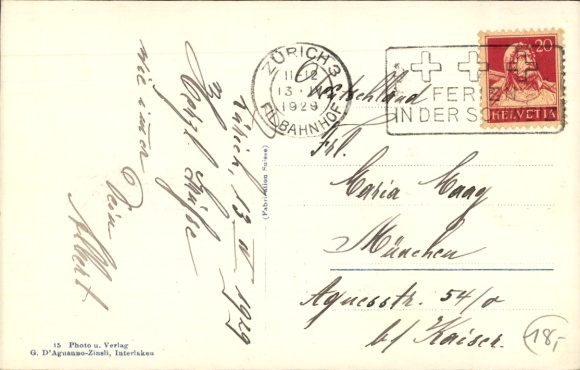 Zürich, 13 IV 1929
Herzl. Grüße
wie immer
Dein
Albert
(Fabrication Suisse)
15 Photo u. Verlag
G. D'Aguanno-Zinsli, Interlaken
ZÜRICH 3
11-12
13
1929
FIL. BAHNHOF
FERIEN
IN DER SCH
20
HELVETIA
Deutschland
Frl.
Maria Haag
München
Agnesstr. 54/0
b/ Kaiser.
18,-